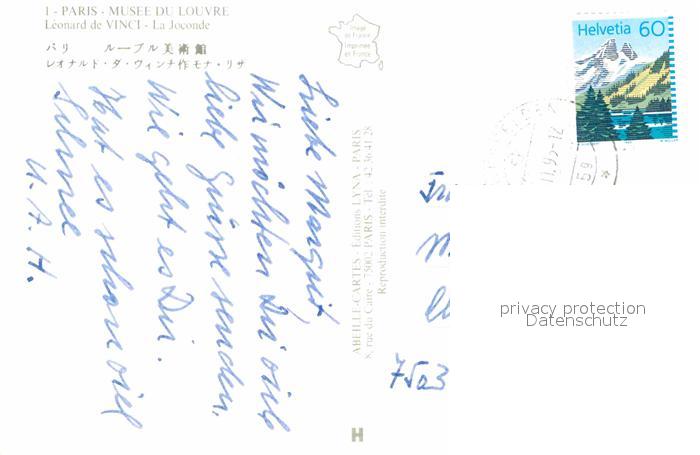 1 - PARIS - MUSEE DU LOUVRE
Léonard de VINCI - La Joconde
パリ ルーブル美術館
レオナルド・ダ・ヴィンチ作モナ・リザ
Image de France
Imprimée en France
Helvetia 60
11.95-12
59
Liebe Margrit
Wir möchten Dir viele
liebe Grüsse senden.
Wie geht es Dir.
Hat es schon viel
Schnee
U. A. H.
ABEILLE-CARTES - Éditions LYNA - PARIS
8, rue du Caire - 75002 PARIS - Tél. 42.36.41.28
Reproduction interdite
7503
privacy protection
Datenschutz
H